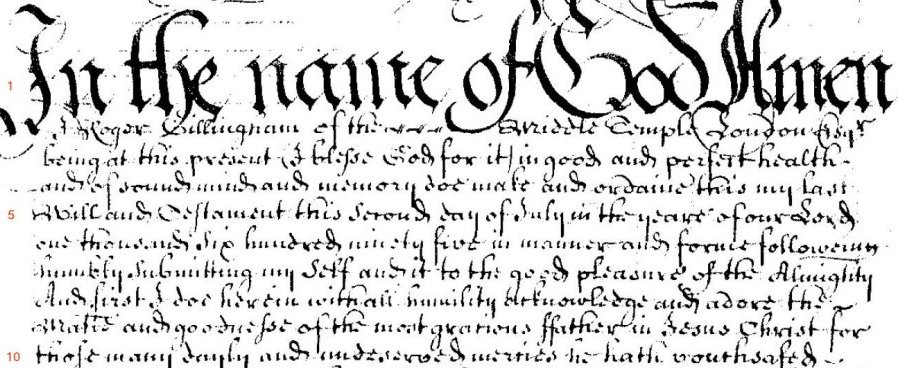 In the name of God Amen
1
I Roger Gillingham of the Middle Temple London Esqr
being at this present (I blesse God for it) in good and perfect health
and of sound mind and memory doe make and ordaine this my last
5
Will and Testament this second day of July in the yeare of our Lord
one thousand six hundred ninety five in manner and forme followeing
humbly submitting my self and it to the good pleasure of the Almighty
And first I doe herein with all humility acknowledge and adore the
Matie and goodnesse of the most gratious ffather in Jesus Christ for
10
those many dayly and undeserved mercies he hath vouthsafed